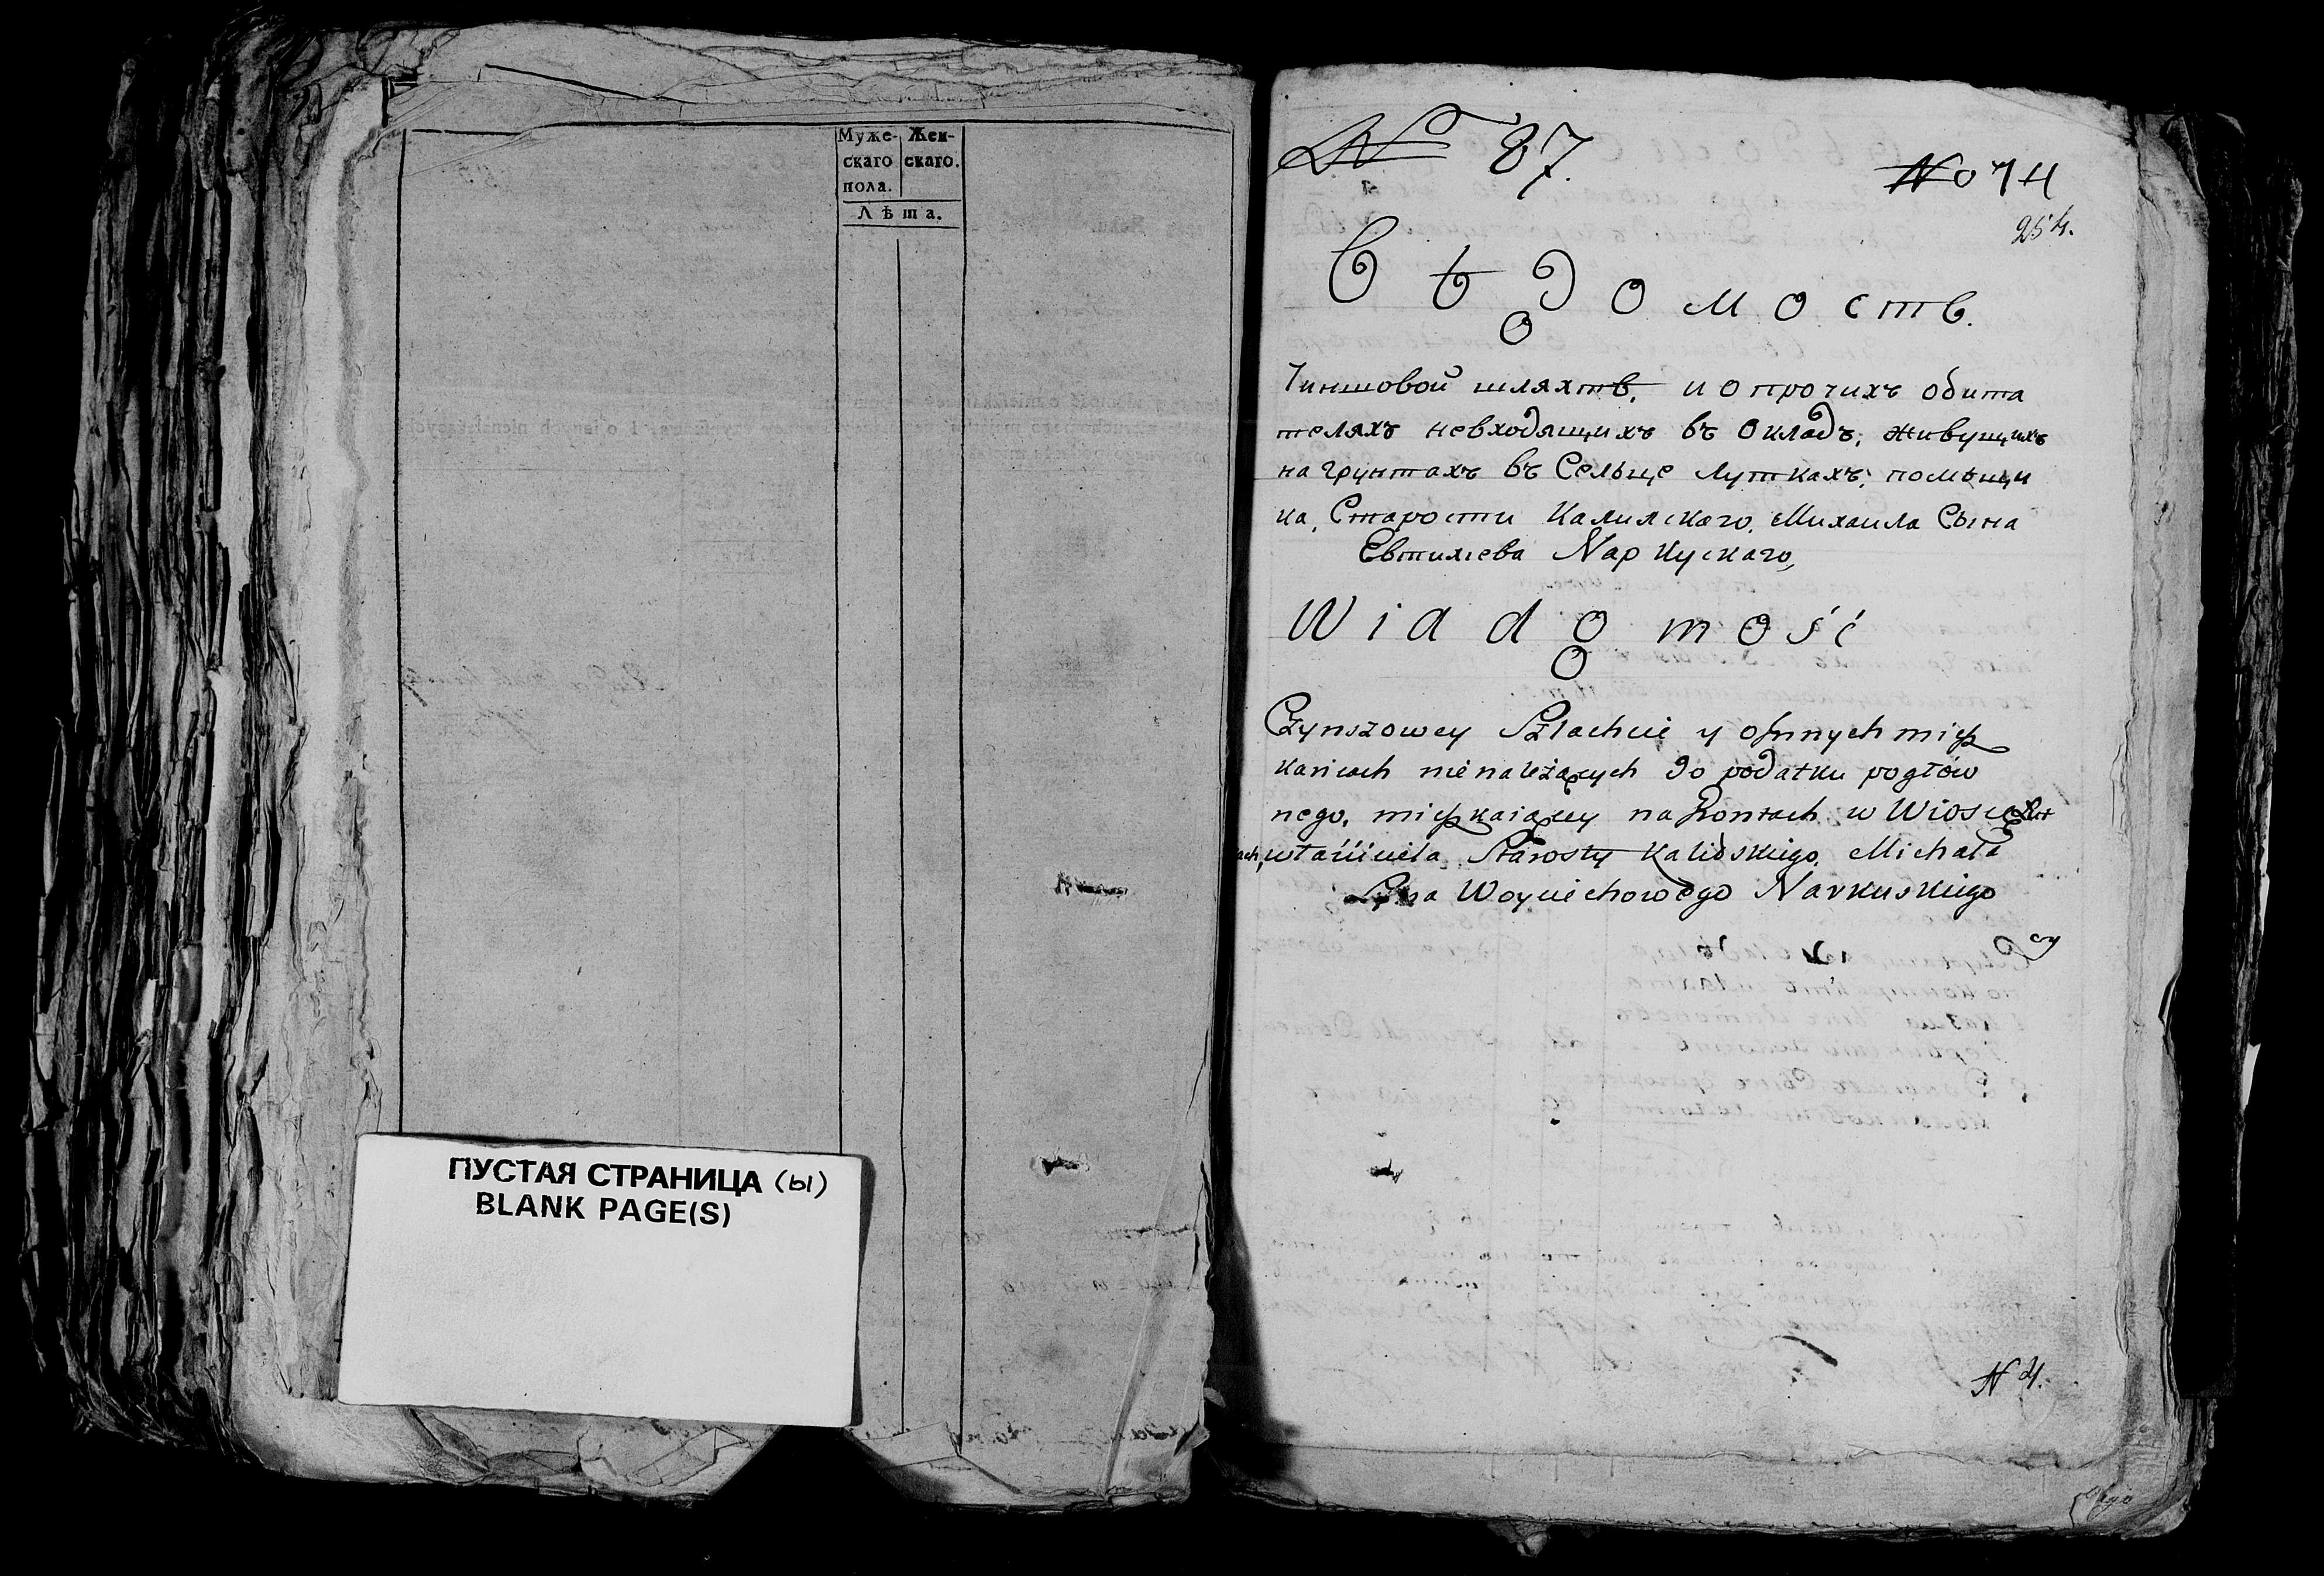 Муже-
скаго
пола.
Жен-
скаго.
Лѣта.
ПУСТАЯ СТРАНИЦА (ы)
BLANK PAGE(S)
№ 87.
№ 74
254.
Вѣдомость
О
Чиншовой шляхтѣ, и о прочихъ обита
теляхъ невходящихъ въ Окладъ, живущихъ
на грунтахъ въ Сельце Луткахъ, помѣщи
ка, Старости Калискаго, Михаила Сына
Евтихіева Наркускаго,
Wiadomość
O
Czynszowey Szlachcie y o innych miesz
kańcach nienależących do podatku pogłów
nego, mieszkaiącey na Grontach w Wiosce Lut
kach, właściciela Starosty Kaliskiego, Michała
Syna Woyciechowego Narkuskiego
N 4.